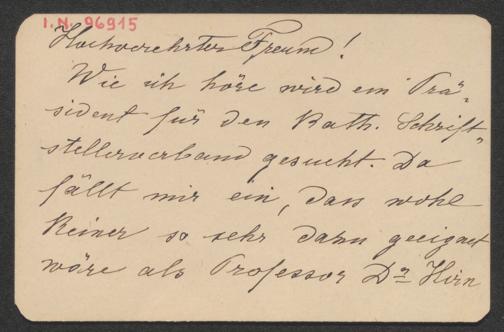 I.N. 96915
Hochverehrter Freund!
Wie ich höre wird ein Prä-
sident für den Kath. Schrift-
stellerverband gesucht. Da
fällt mir ein, dass wohl
Keiner so sehr dazu geeignet
wäre als Professor Dr Hirn